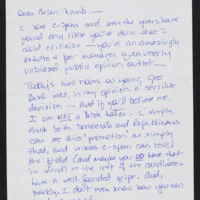 Dear Brian Lamb —
I love c-span and over the years have
found very little you've done that I
could criticize — you're an amazingly
astute & fair manager, overtly
unbiased public opinion outlet —
Today's two hours so young Geo
Bush was, in my opinion, a terrible
decision — and if you'd believe me,
I am NOT a Bush hater — I simply
think both Democrats and Republicans
can see this "promotion" as simply
that, and unless c-span can level
the board (and maybe you do have that
in mind) on the rest of the candidates
have a well-founded gripe. And,
frankly, I don't even know how you can